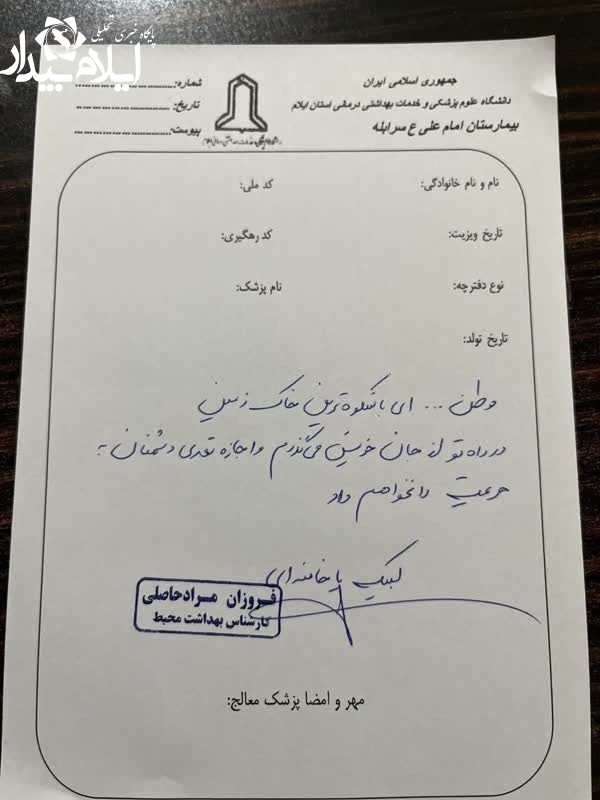 پایگاه خبری تحلیلی
ایلام بیدار
جمهوری اسلامی ایران
دانشگاه علوم پزشکی و خدمات بهداشتی درمانی استان ایلام
بیمارستان امام علی ع سرابله
شماره:
تاریخ:
پیوست:
نام و نام خانوادگی:
کد ملی:
تاریخ ویزیت:
کد رهگیری:
نوع دفترچه:
نام پزشک:
تاریخ تولد:
وطن ... ای باشکوه‌ترین خاک زمین
در راه تو از جان خویش می‌گذرم و اجازه تعدی دشمنان به
حریمت را نخواهم داد
لبیک یا خامنه‌ای
فروزان مرادحاصلی
کارشناس بهداشت محیط
مهر و امضا پزشک معالج: